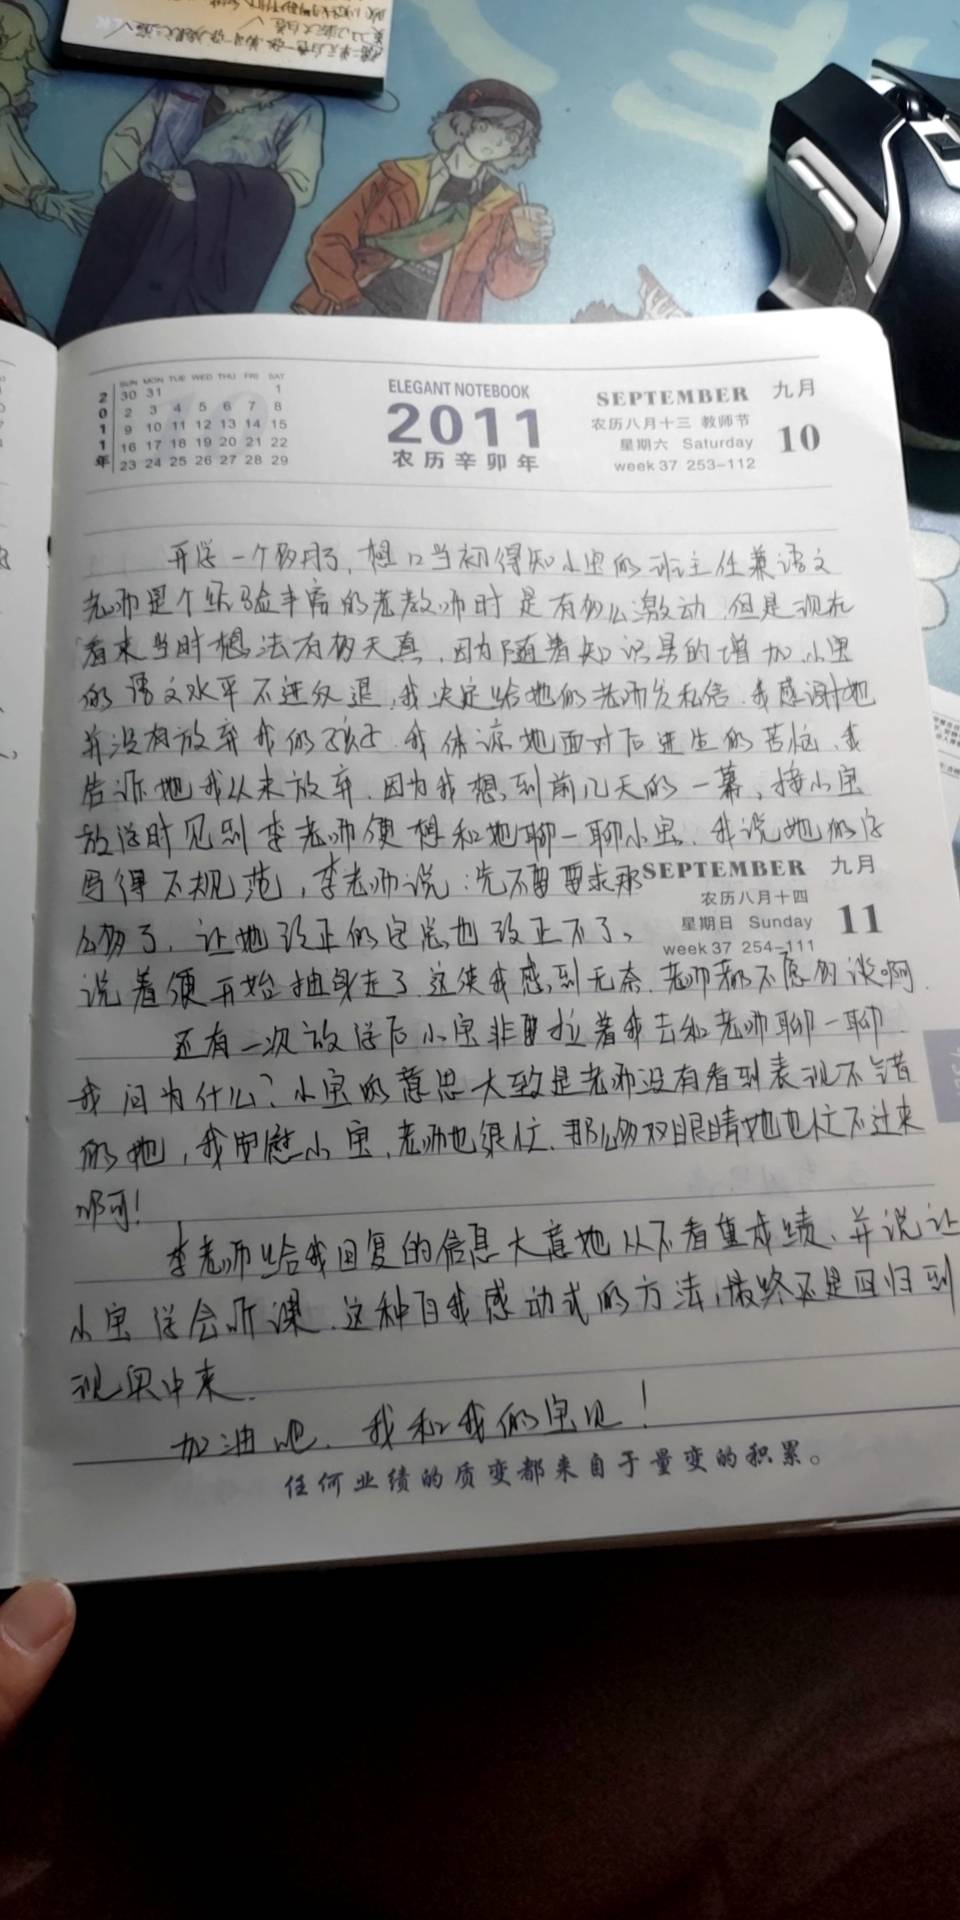 SUN MON TUE WED THU FRI SAT
30 31 1
2 3 4 5 6 7 8
9 10 11 12 13 14 15
16 17 18 19 20 21 22
23 24 25 26 27 28 29
2011年
ELEGANT NOTEBOOK
2011
农历辛卯年
SEPTEMBER 九月
农历八月十三 教师节
星期六 Saturday
week 37 253-112
10
开学一个多月了，想起当初得知小宝的班主任兼语文
老师是个经验丰富的老教师时是有多么激动，但是现在
看来当时想法有多天真，因为随着知识量的增加，小宝
的语文水平不进反退，我决定给她的老师发私信，我感谢她
并没有放弃我的孩子，我体谅她面对后进生的苦恼，我
告诉她我从未放弃，因为我想到前几天的一幕，接小宝
放学时见到李老师便想和她聊一聊小宝，我说她的字
写得不规范，李老师说：先不要要求那
么多了，让她改正的字总也改正不了。
SEPTEMBER 九月
农历八月十四
星期日 Sunday
week 37 254-111
11
说着便开始抽身走了，这使我感到无奈，老师都不愿多谈啊，
还有一次放学后小宝非要拉着我去和老师聊一聊
我问为什么？小宝的意思大致是老师没有看到表现不错
的她，我安慰小宝，老师也很忙，那么多双眼睛她也忙不过来
啊！
李老师给我回复的信息大意她从不看重成绩，并说让
小宝学会听课，这种自我感动式的方法，最终还是回归到
现实中来，
加油吧，我和我的宝贝！
任何业绩的质变都来自于量变的积累。